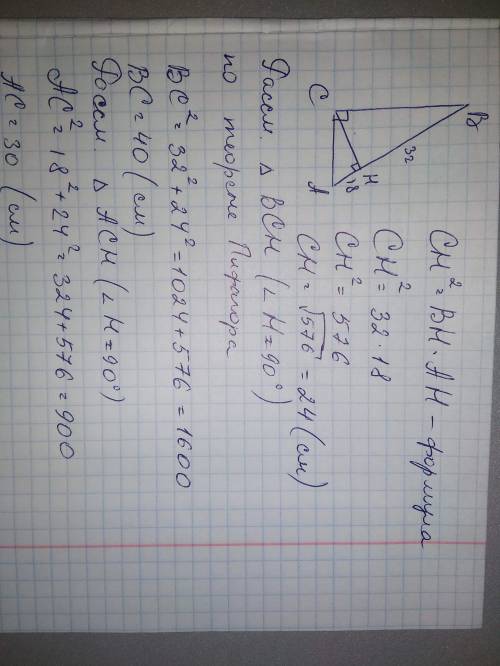 B
32
H
18
C
A
CH² = BH · AH - формула
CH² = 32 · 18
CH² = 576
CH = √576 = 24 (см)
Рассм. △ BCH (∠H = 90°)
по теореме Пифагора
BC² = 32² + 24² = 1024 + 576 = 1600
BC = 40 (см)
Рассм. △ ACH (∠H = 90°)
AC² = 18² + 24² = 324 + 576 = 900
AC = 30 (см)